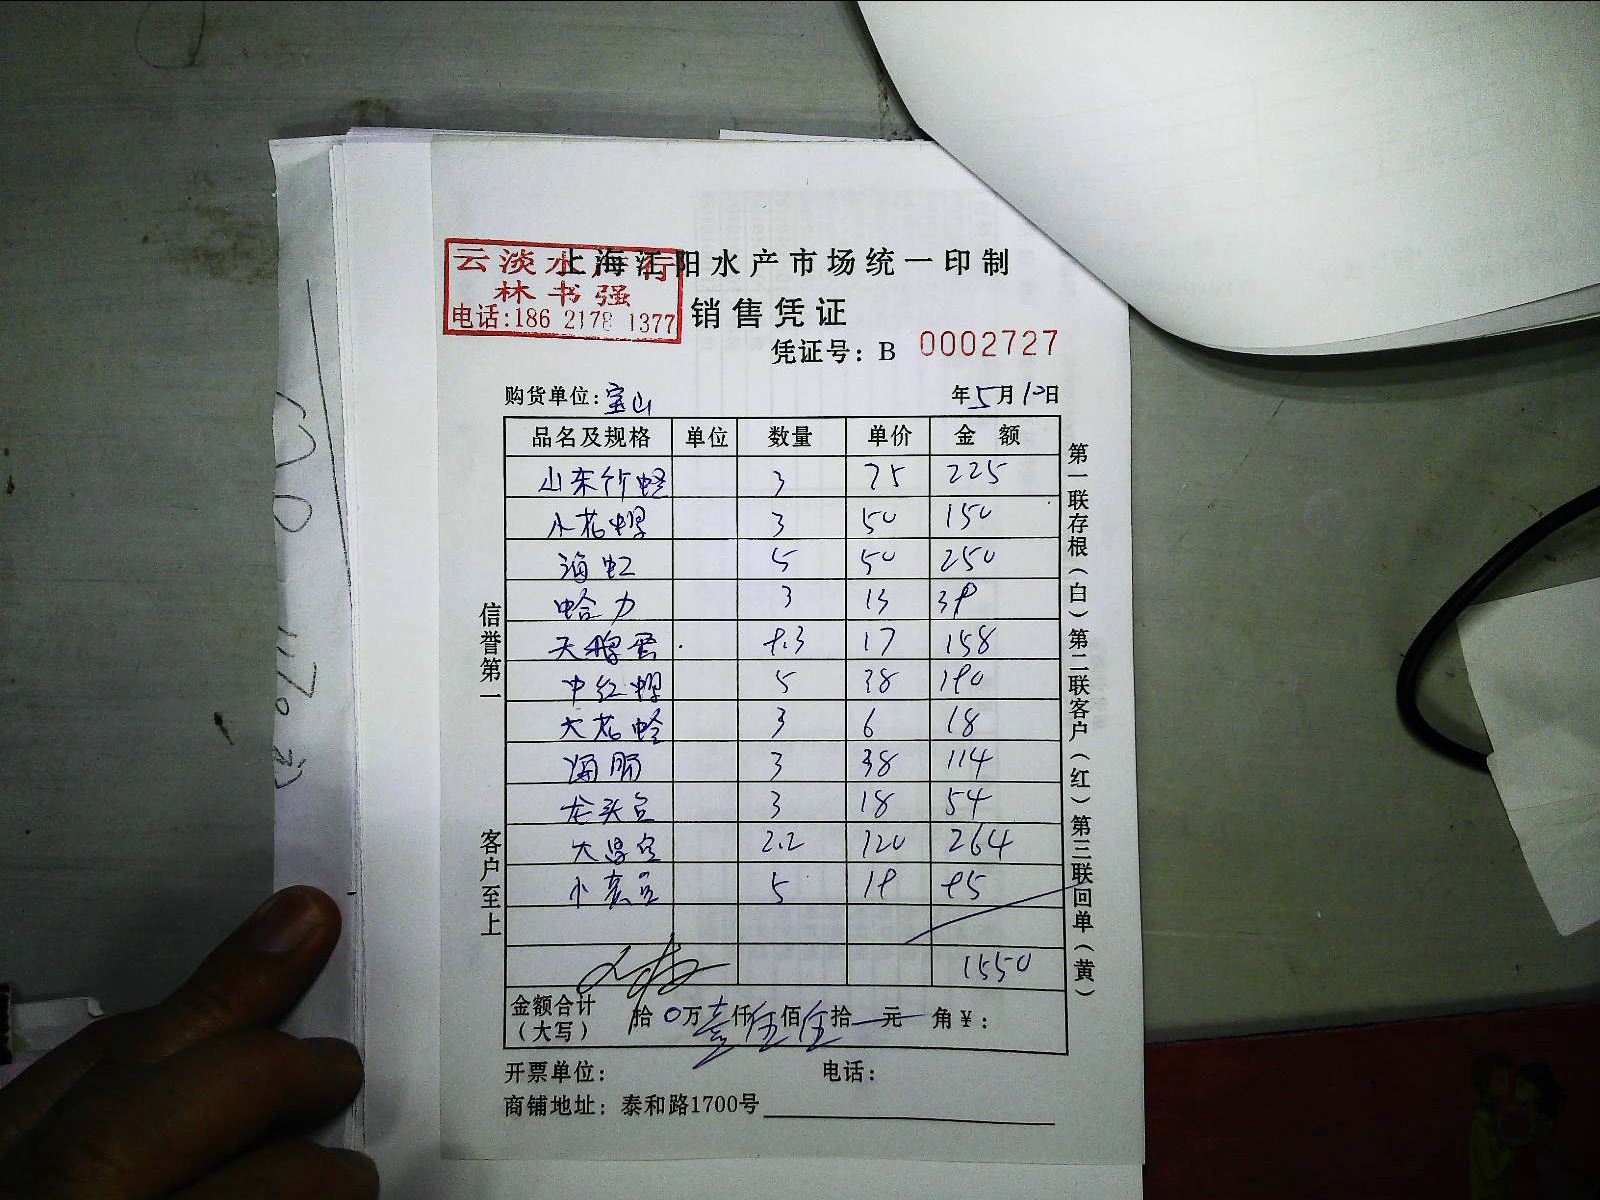 上海江阳水产市场统一印制
云淡水产行
林书强
电话:186 2178 1377
销售凭证
凭证号: B 0002727
购货单位: 宝山 年5月10日
品名及规格 单位 数量 单价 金额
山东竹蛏 3 75 225
小花螺 3 50 150
海虹 5 50 250
蛤力 3 13 39
天鹅蛋 9.3 17 158
中红螺 5 38 190
大花蛤 3 6 18
海肠 3 38 114
龙头 3 18 54
大 2.2 120 264
小 5 19 95
1550
金额合计(大写) 拾0万壹仟伍佰伍拾元 角¥:
开票单位: 电话:
商铺地址: 泰和路1700号
信誉第一 客户至上
第一联存根(白)第二联客户(红)第三联回单(黄)